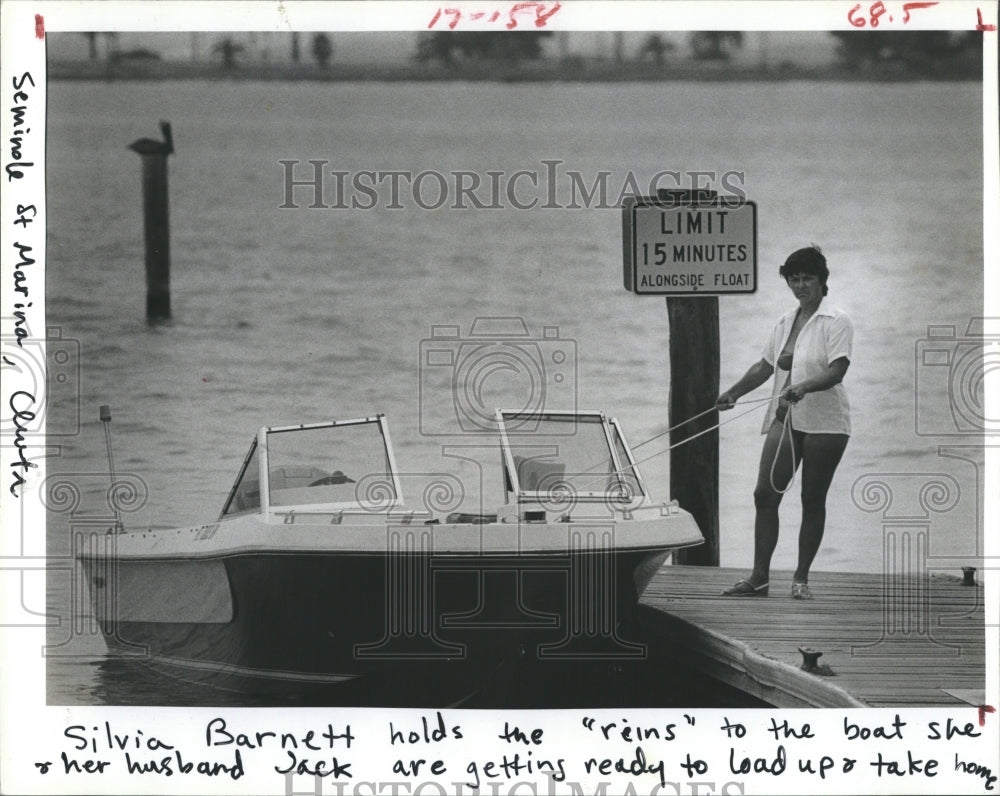 17-158
68.5
Seminole St Marina, Clwtr
HISTORIC IMAGES
LIMIT
15 MINUTES
ALONGSIDE FLOAT
Silvia Barnett holds the "reins" to the boat she
& her husband Jack are getting ready to load up & take home
HISTORIC IMAGES